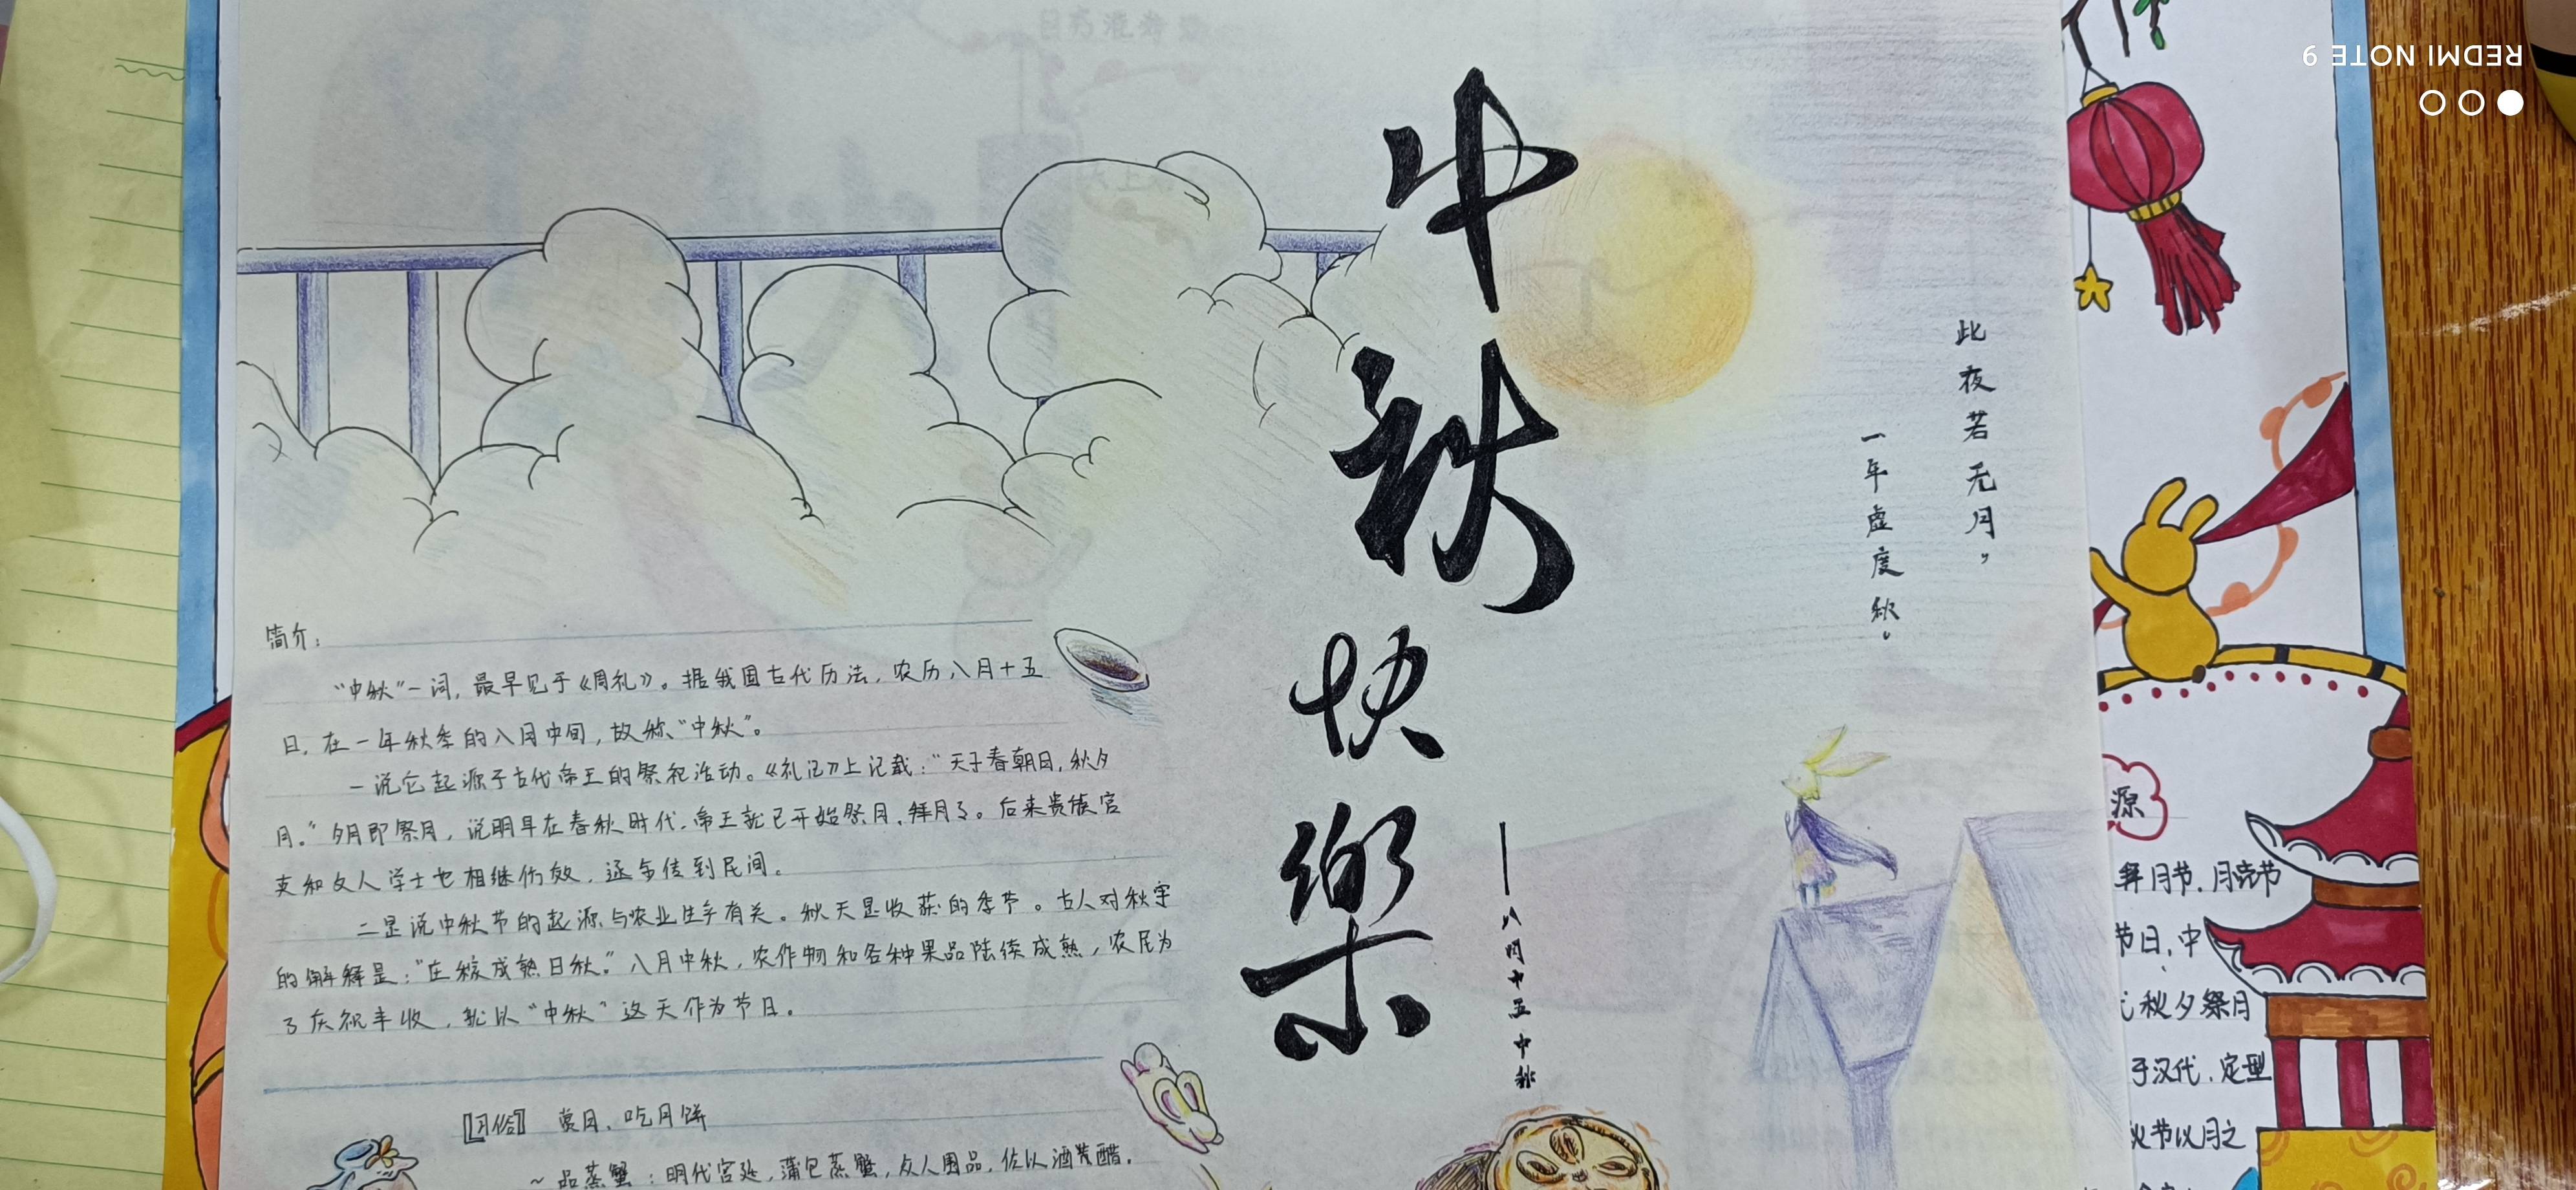 中秋快樂
——八月十五中秋
此夜若无月，
一年虚度秋。
简介：
“中秋”一词，最早见于《周礼》。据我国古代历法，农历八月十五
日，在一年秋季的八月中旬，故称“中秋”。
一说它起源于古代帝王的祭祀活动。《礼记》上记载：“天子春朝日，秋夕
月。”夕月即祭月，说明早在春秋时代，帝王就已开始祭月、拜月了。后来贵族官
吏和文人学士也相继仿效，逐步传到民间。
二是说中秋节的起源与农业生产有关。秋天是收获的季节。古人对秋字
的解释是：“庄稼成熟日秋。”八月中秋，农作物和各种果品陆续成熟，农民为
了庆祝丰收，就以“中秋”这天作为节日。
【习俗】 赏月、吃月饼
~品蒸蟹：明代宫廷，蒲包蒸蟹，众人围品，佐以酒
源
拜月节、月亮节
节日，中
秋夕祭月
于汉代，定型
秋节以月之
REDMI NOTE 9